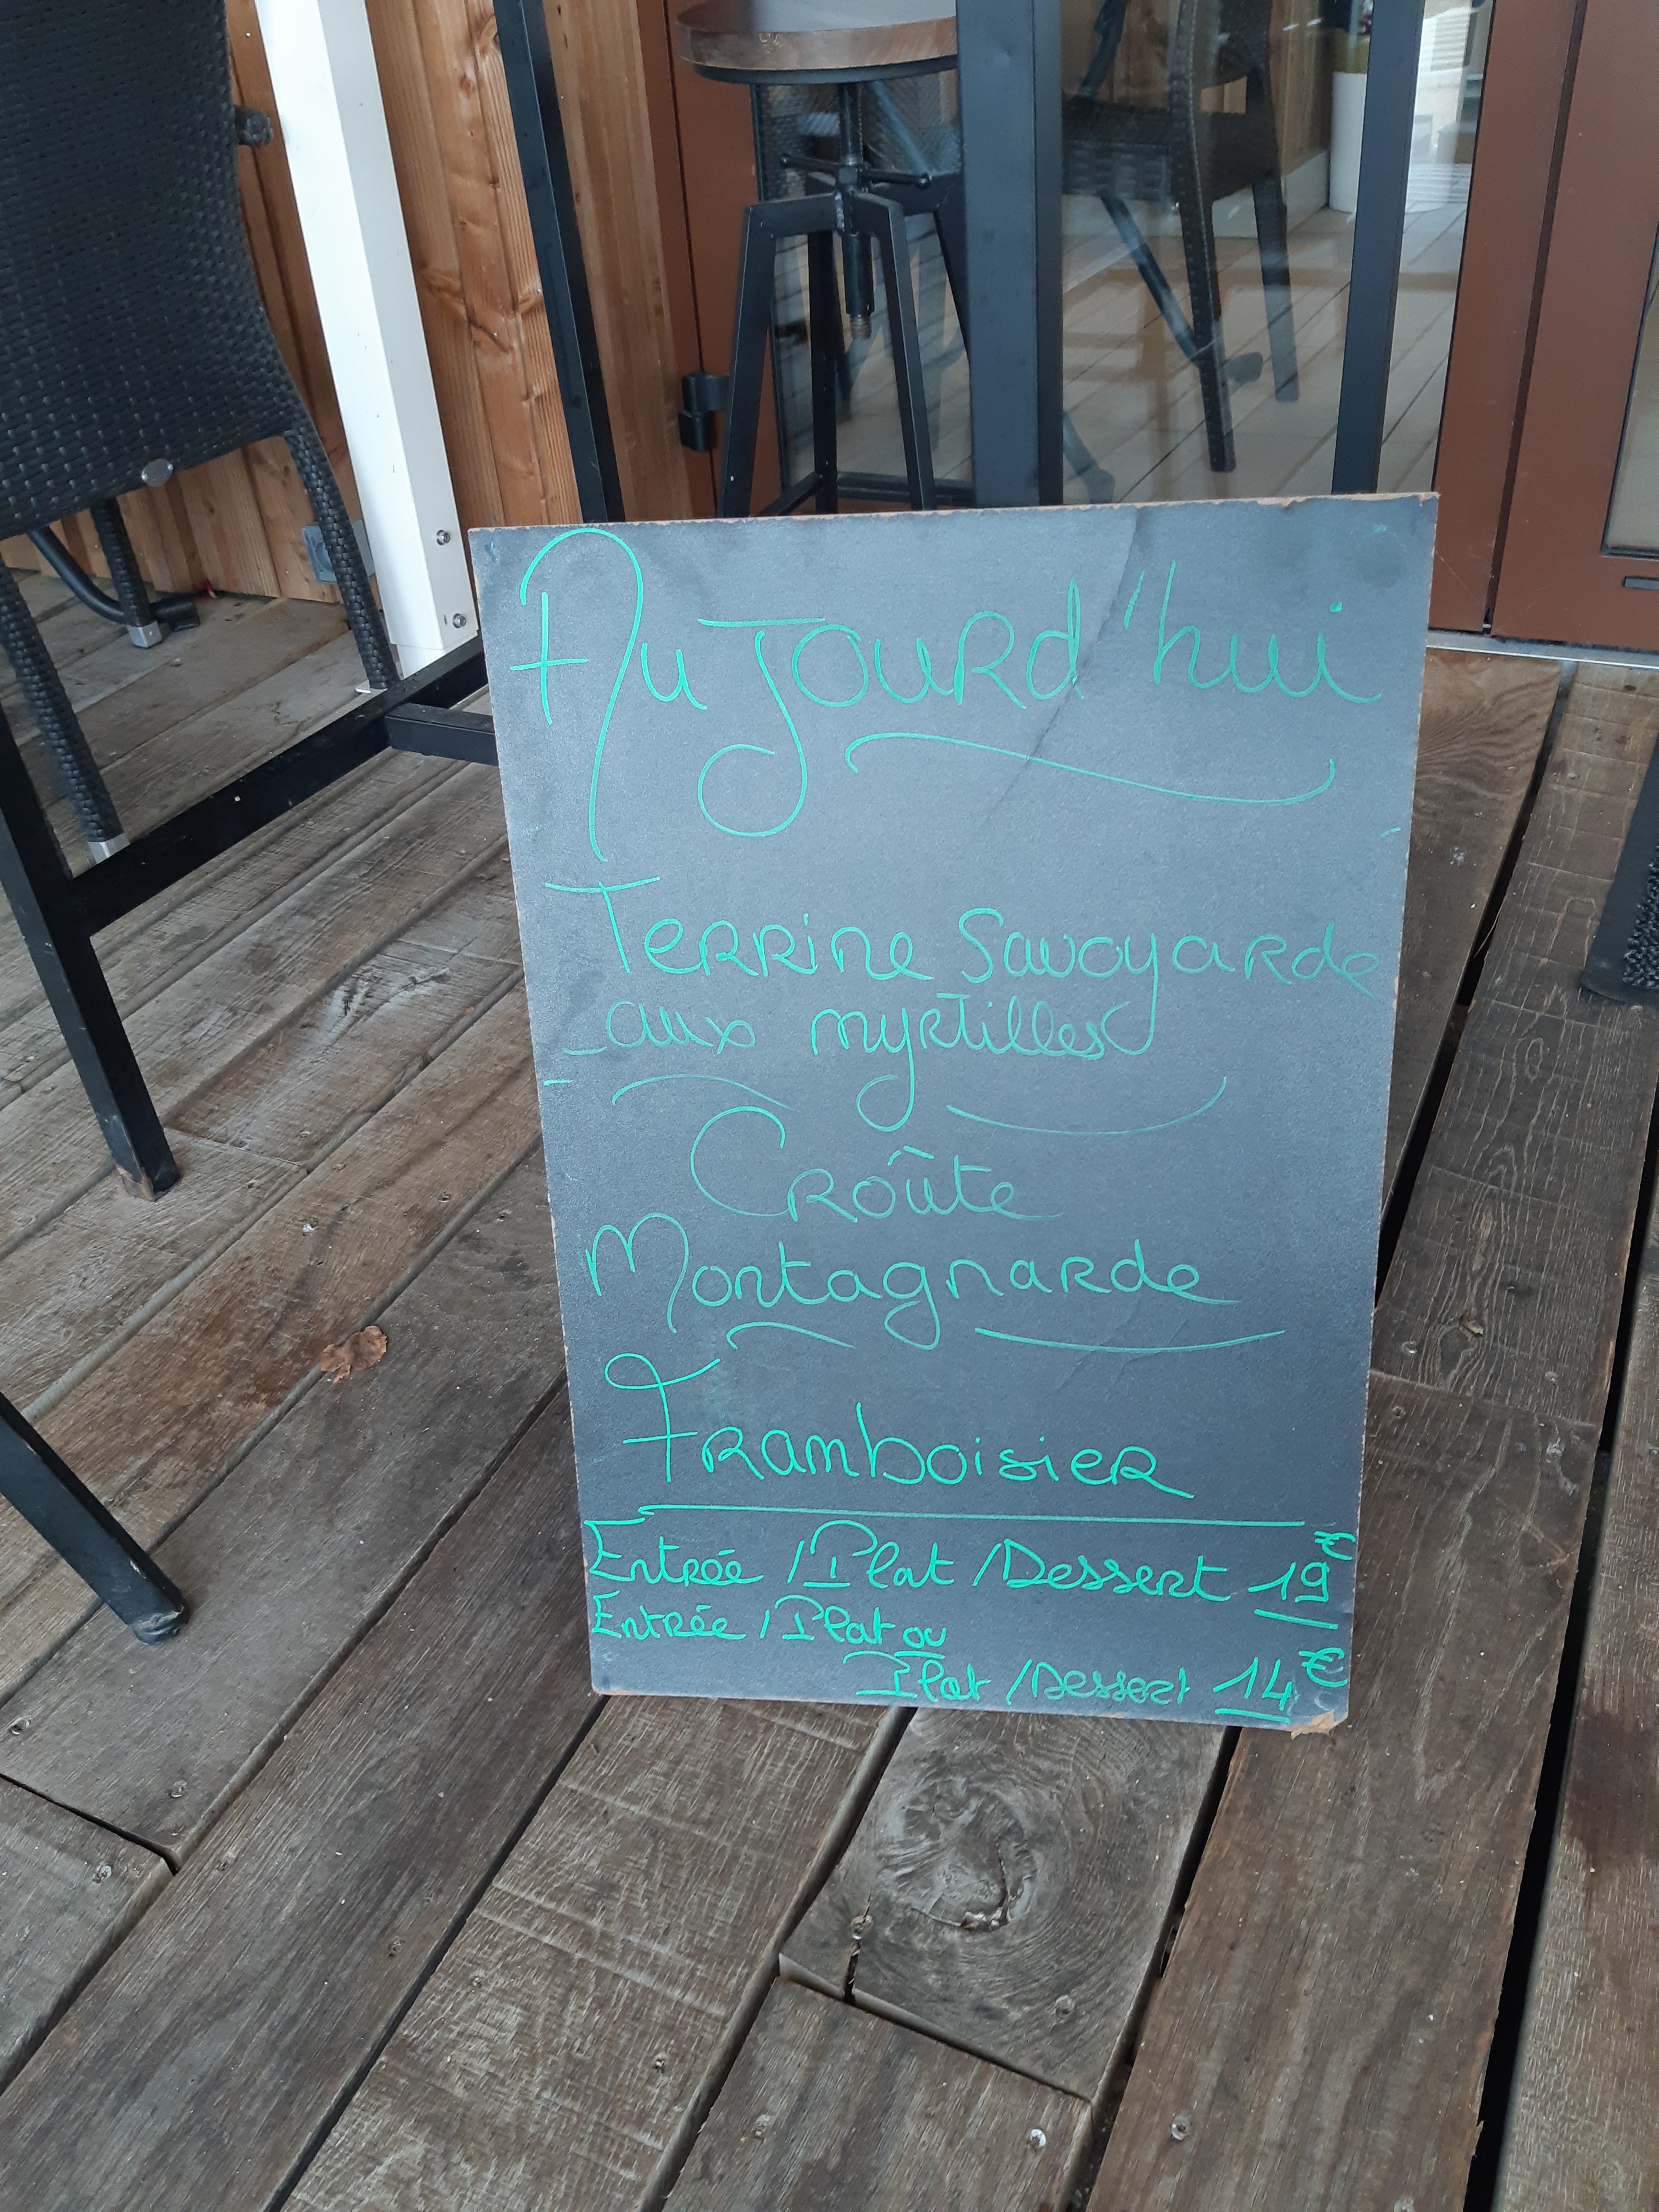 Aujourd'hui
Terrine Savoyarde
aux myrtilles
Croûte
Montagnarde
Framboisier
Entrée / Plat / Dessert 19€
Entrée / Plat ou
Plat / Dessert 14€